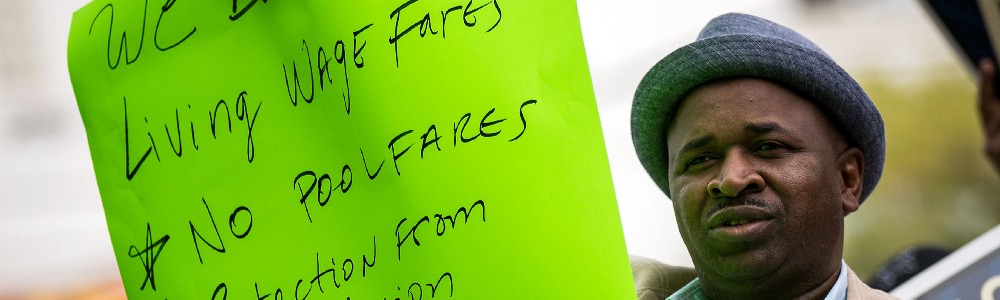 We
Living Wage Fares
* No POOLFARES
Protection From